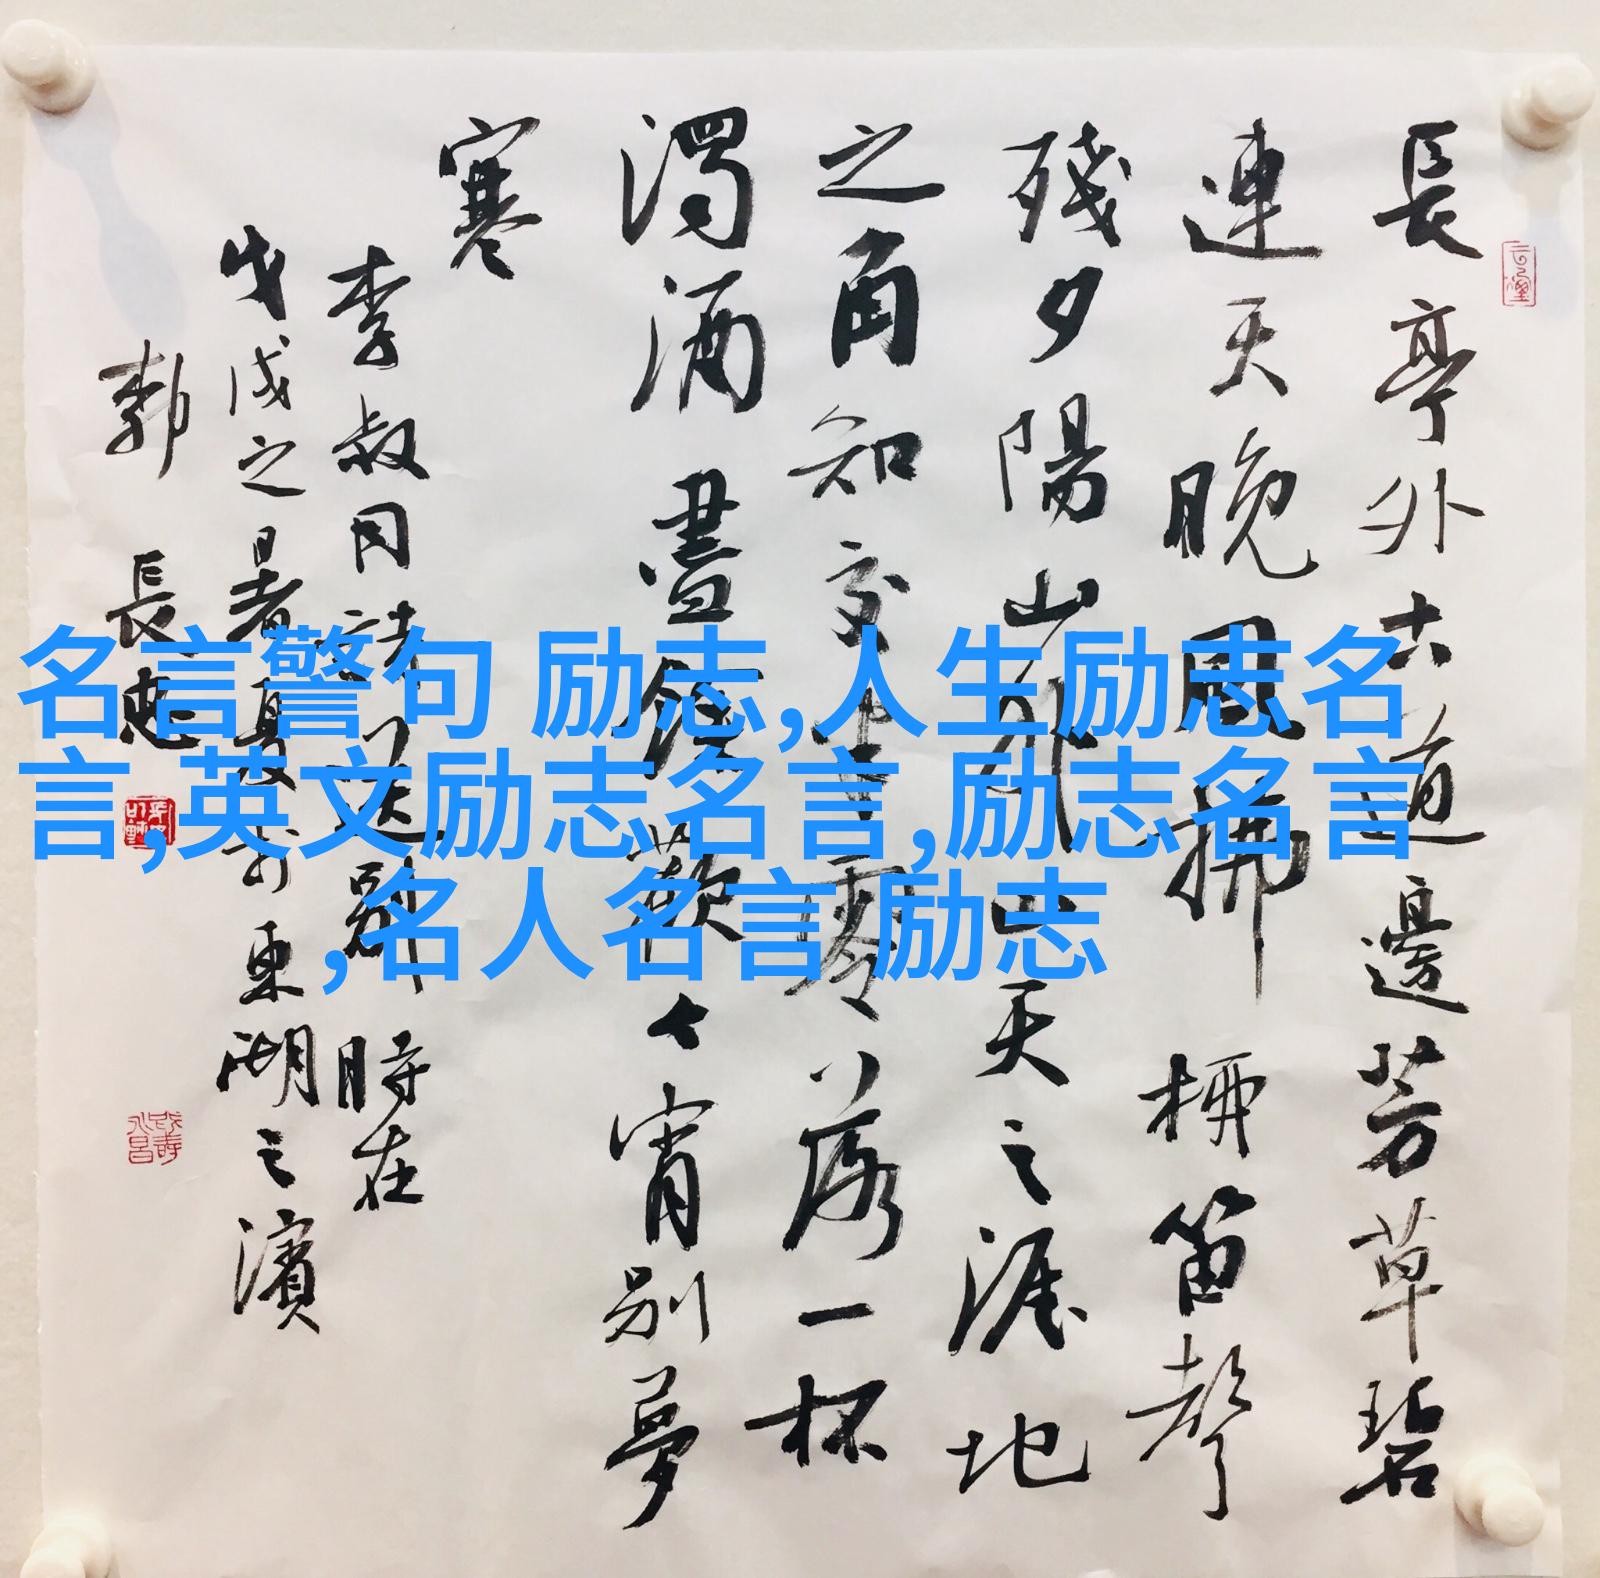 長亭外古道邊芳草碧
連天晚風拂柳笛聲
殘夕陽山外山天之涯地
之角知交半零落一杯
濁酒盡餘歡今宵別夢
寒
李叔同詩送別時在
戊戌之暑夏於東湖之濱
郭長忠
名言警句 励志,人生励志名
言,英文励志名言,励志名言
,名人名言 励志